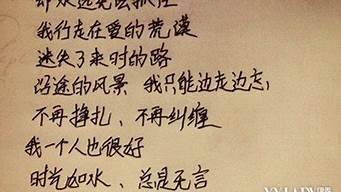 却永远无法抓住
我行走在爱的荒漠
迷失了来时的路
沿途的风景 我只能边走边忘
不再挣扎、不再纠缠
我一个人也很好
时光如水、总是无言